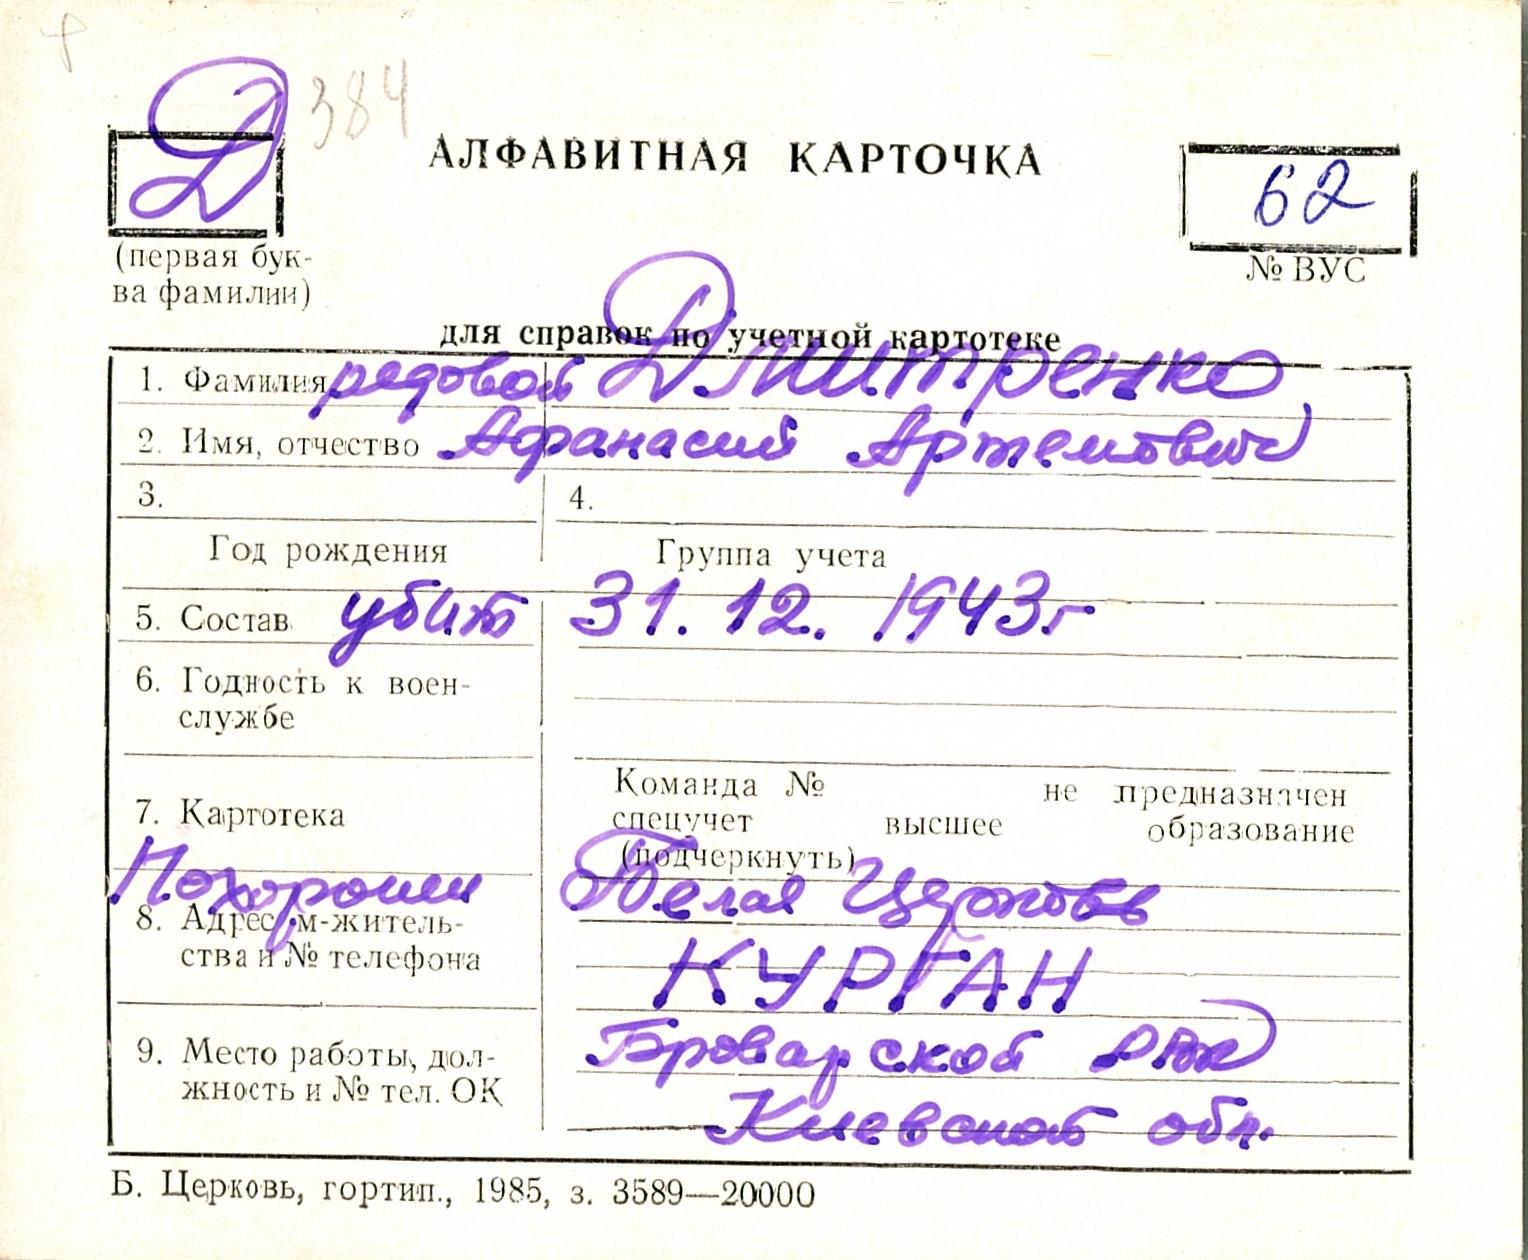 Д 384
АЛФАВИТНАЯ КАРТОЧКА
62
(первая бук-
ва фамилии)
№ ВУС
для справок по учетной картотеке
1. Фамилия рядовой Дмитренко
2. Имя, отчество Афанасий Артемович
3. 4.
Год рождения Группа учета
5. Состав убит 31.12.1943г
6. Годность к воен-
службе
7. Картотека
Команда № не предназначен
спецучет высшее образование
(подчеркнуть)
Похорошен Белая Церковь
8. Адрес м-житель-
ства и № телефона
КУРГАН
9. Место работы, дол-
жность и № тел. ОК
Броварской РВК
Киевской обл.
Б. Церковь, гортип., 1985, з. 3589—20000